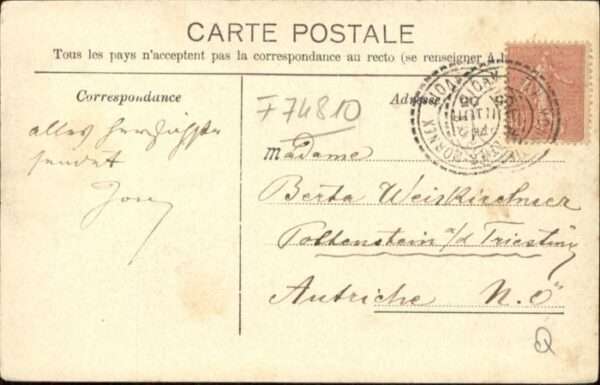 CARTE POSTALE
Tous les pays n'acceptent pas la correspondance au recto (se renseigner à l
Correspondance
Adresse
F74810
alles herzlichste
sendet
Madame
Berta Weiskirchner
Pottenstein a/d Triesting
Autriche N.Ö
Q